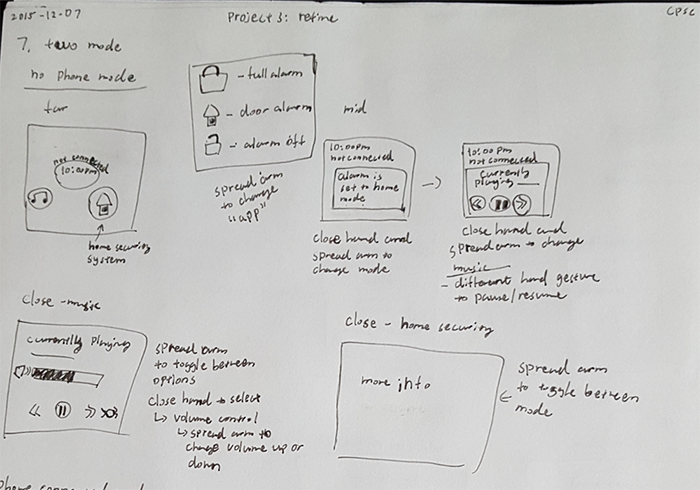 2015-12-07
Project 3: refine
CPSC
7. two mode
no phone mode
far
not connected
10:00pm
home securing
system
- full alarm
- door alarm
- alarm off
spread arm
to change
"app"
mid
10:00pm
not connected
alarm is
set to home
mode
close hand and
spread arm to
change mode
10:00 pm
not connected
currently
playing
close hand and
spread arm to change
music
- different hand gesture
to pause/resume
close - music
currently playing
spread arm
to toggle between
options
close hand to select
↳ volume control
↳ spread arm to
change volume up or
down
close - home securing
more info
spread arm
to toggle between
mode